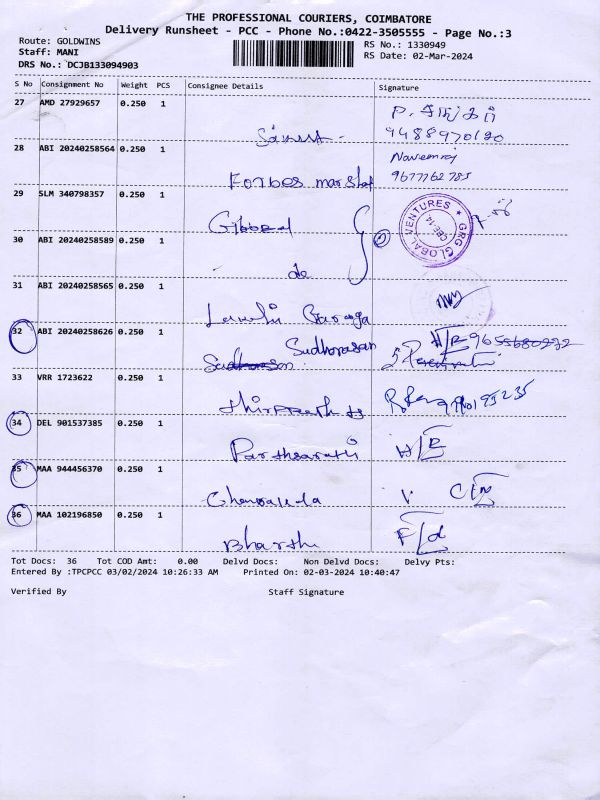 THE PROFESSIONAL COURIERS, COIMBATORE
Delivery Runsheet - PCC - Phone No.:0422-3505555 - Page No.:3
Route: GOLDWINS
Staff: MANI
DRS No.: DCJB133094903
RS No.: 1330949
RS Date: 02-Mar-2024
S No Consignment No Weight PCS Consignee Details Signature
27 AMD 27929657 0.250 1
9488970190
28 ABI 20240258564 0.250 1
Forbes marshal
9677762785
29 SLM 340798357 0.250 1
GRG GLOBAL VENTURES
CBE-14
30 ABI 20240258589 0.250 1
do
31 ABI 20240258565 0.250 1
32 ABI 20240258626 0.250 1
Sudharasan
33 VRR 1723622 0.250 1
34 DEL 901537385 0.250 1
Parthsarathi
35 MAA 944456370 0.250 1
36 MAA 102196850 0.250 1
Bharthi
Tot Docs: 36 Tot COD Amt: 0.00 Delvd Docs: Non Delvd Docs: Delvy Pts:
Entered By :TPCPCC 03/02/2024 10:26:33 AM Printed On: 02-03-2024 10:40:47
Verified By Staff Signature